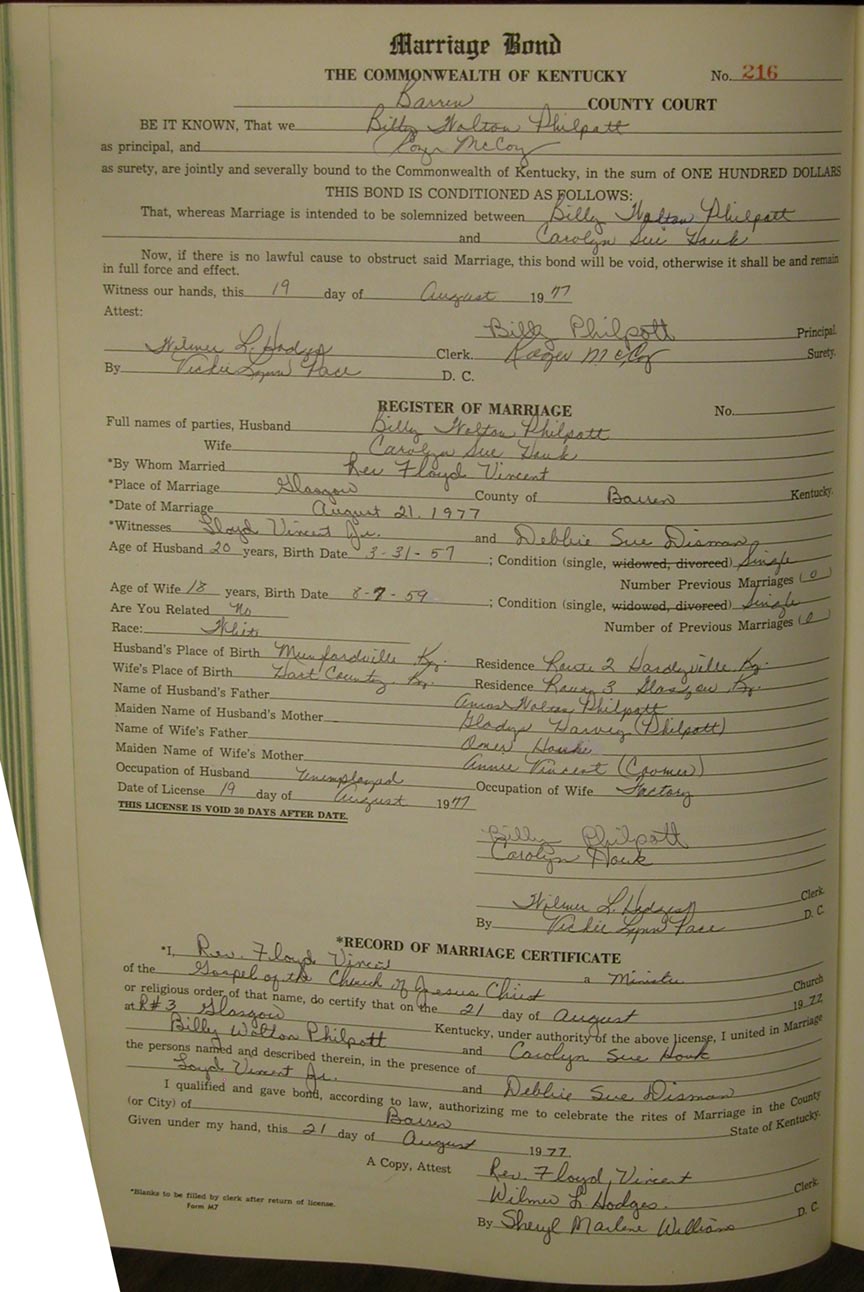 Marriage Bond
THE COMMONWEALTH OF KENTUCKY No. 216
Barren COUNTY COURT
BE IT KNOWN, That we Billy Walton Philpott
as principal, and Roger McCoy
as surety, are jointly and severally bound to the Commonwealth of Kentucky, in the sum of ONE HUNDRED DOLLARS
THIS BOND IS CONDITIONED AS FOLLOWS:
That, whereas Marriage is intended to be solemnized between Billy Walton Philpott
and Carolyn Sue Houk
Now, if there is no lawful cause to obstruct said Marriage, this bond will be void, otherwise it shall be and remain
in full force and effect.
Witness our hands, this 19 day of August 1977
Attest:
Billy Philpott Principal.
Wilmer L. Hodges Clerk. Roger McCoy Surety.
By Vickie Lynn Pace D. C.
REGISTER OF MARRIAGE No.
Full names of parties, Husband Billy Walton Philpott
Wife Carolyn Sue Houk
*By Whom Married Rev Floyd Vincent
*Place of Marriage Glasgow County of Barren Kentucky.
*Date of Marriage August 21, 1977
*Witnesses Floyd Vincent Jr. and Debbie Sue Disman
Age of Husband 20 years, Birth Date 3-31-57; Condition (single, widowed, divorced) Single
Number Previous Marriages (0)
Age of Wife 18 years, Birth Date 8-7-59; Condition (single, widowed, divorced) Single
Are You Related No Number of Previous Marriages (0)
Race: White
Husband's Place of Birth Munfordville Ky. Residence Route 2 Hardyville Ky.
Wife's Place of Birth Hart County, Ky. Residence Route 3 Glasgow Ky.
Name of Husband's Father Amos Walton Philpott
Maiden Name of Husband's Mother Gladys Harvey (Philpott)
Name of Wife's Father Omer Houk
Maiden Name of Wife's Mother Annie Vincent (Coomer)
Occupation of Husband Unemployed Occupation of Wife Factory
Date of License 19 day of August 1977
THIS LICENSE IS VOID 30 DAYS AFTER DATE.
Billy Philpott
Carolyn Houk
Wilmer L. Hodges Clerk.
By Vickie Lynn Pace D. C.
*RECORD OF MARRIAGE CERTIFICATE
*I, Rev. Floyd Vincent a Minister
of the Gospel of the Church of Jesus Christ Church
or religious order of that name, do certify that on the 21 day of August 1977
at R#3 Glasgow Kentucky, under authority of the above license, I united in Marriage
Billy Walton Philpott and Carolyn Sue Houk
the persons named and described therein, in the presence of
Loyd Vincent Jr. and Debbie Sue Disman
I qualified and gave bond, according to law, authorizing me to celebrate the rites of Marriage in the County
(or City) of Barren State of Kentucky.
Given under my hand, this 21 day of August 1977
Rev. Floyd Vincent
A Copy, Attest Wilmer L Hodges. Clerk.
By Sheryl Marlene Williams D. C.
*Blanks to be filled by clerk after return of license.
Form M7